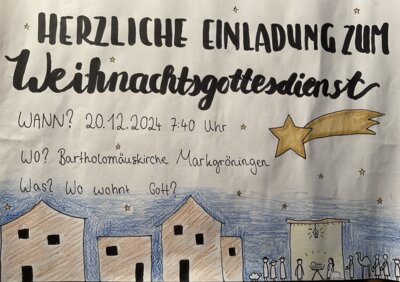 HERZLICHE EINLADUNG ZUM
Weihnachtsgottesdienst
WANN? 20.12.2024 7:40 Uhr
WO? Bartholomäuskirche Markgröningen
Was? Wo wohnt Gott?